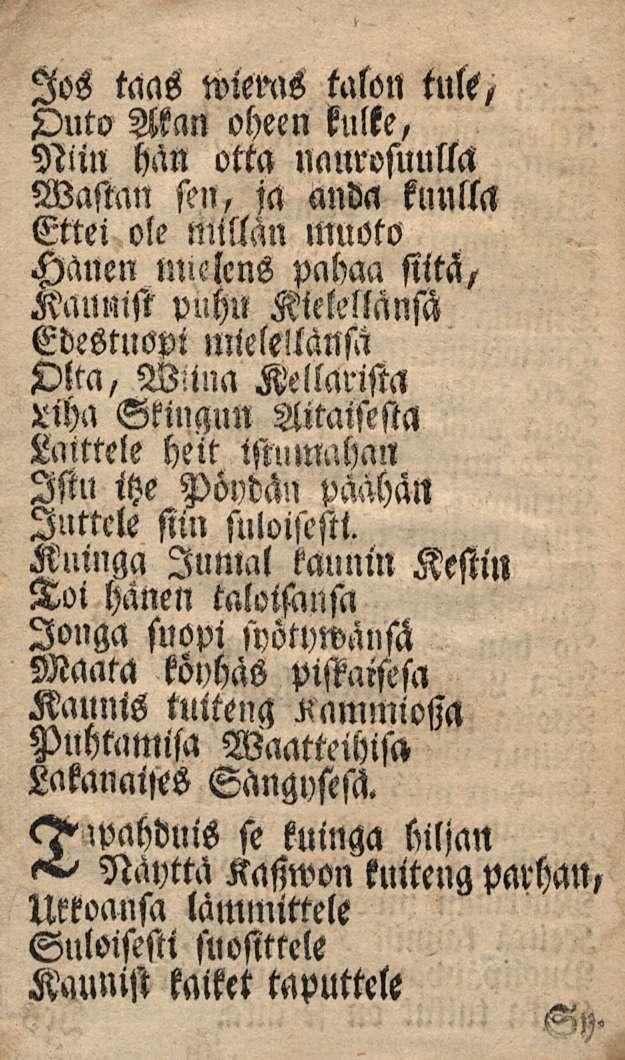 Jos taas wieras talon tule,
Outo Akan oheen kulke,
Niin hän otta naurosuulla
Wastan sen, ja anda kuulla
Ettei ole millän muoto
Hänen mielens pahaa siitä,
Kaunist puhu Kielellänsä
Edestuopi mielellänsä
Olta, Wiina Kellarista
Liha Skingun Aitaisesta
Laittele heit istumahan
Istu itze Pöydän päähän
Juttele siin suloisesti.
Kuinga Jumal kaunin Kestin
Toi hänen taloisansa
Jonga suopi syötywänsä
Maata köyhäs piskaisesa
Kaunis kuiteng Kammiosza
Puhtamisa Waatteihisa
Lakanaises Sängysesä.
Tapahduis se kuinga hiljan
Näyttä Kaszwon kuiteng parhan,
Ukkoansa lämmittele
Suloisesti suosittele
Kaunist kaiket taputtele
Sy-